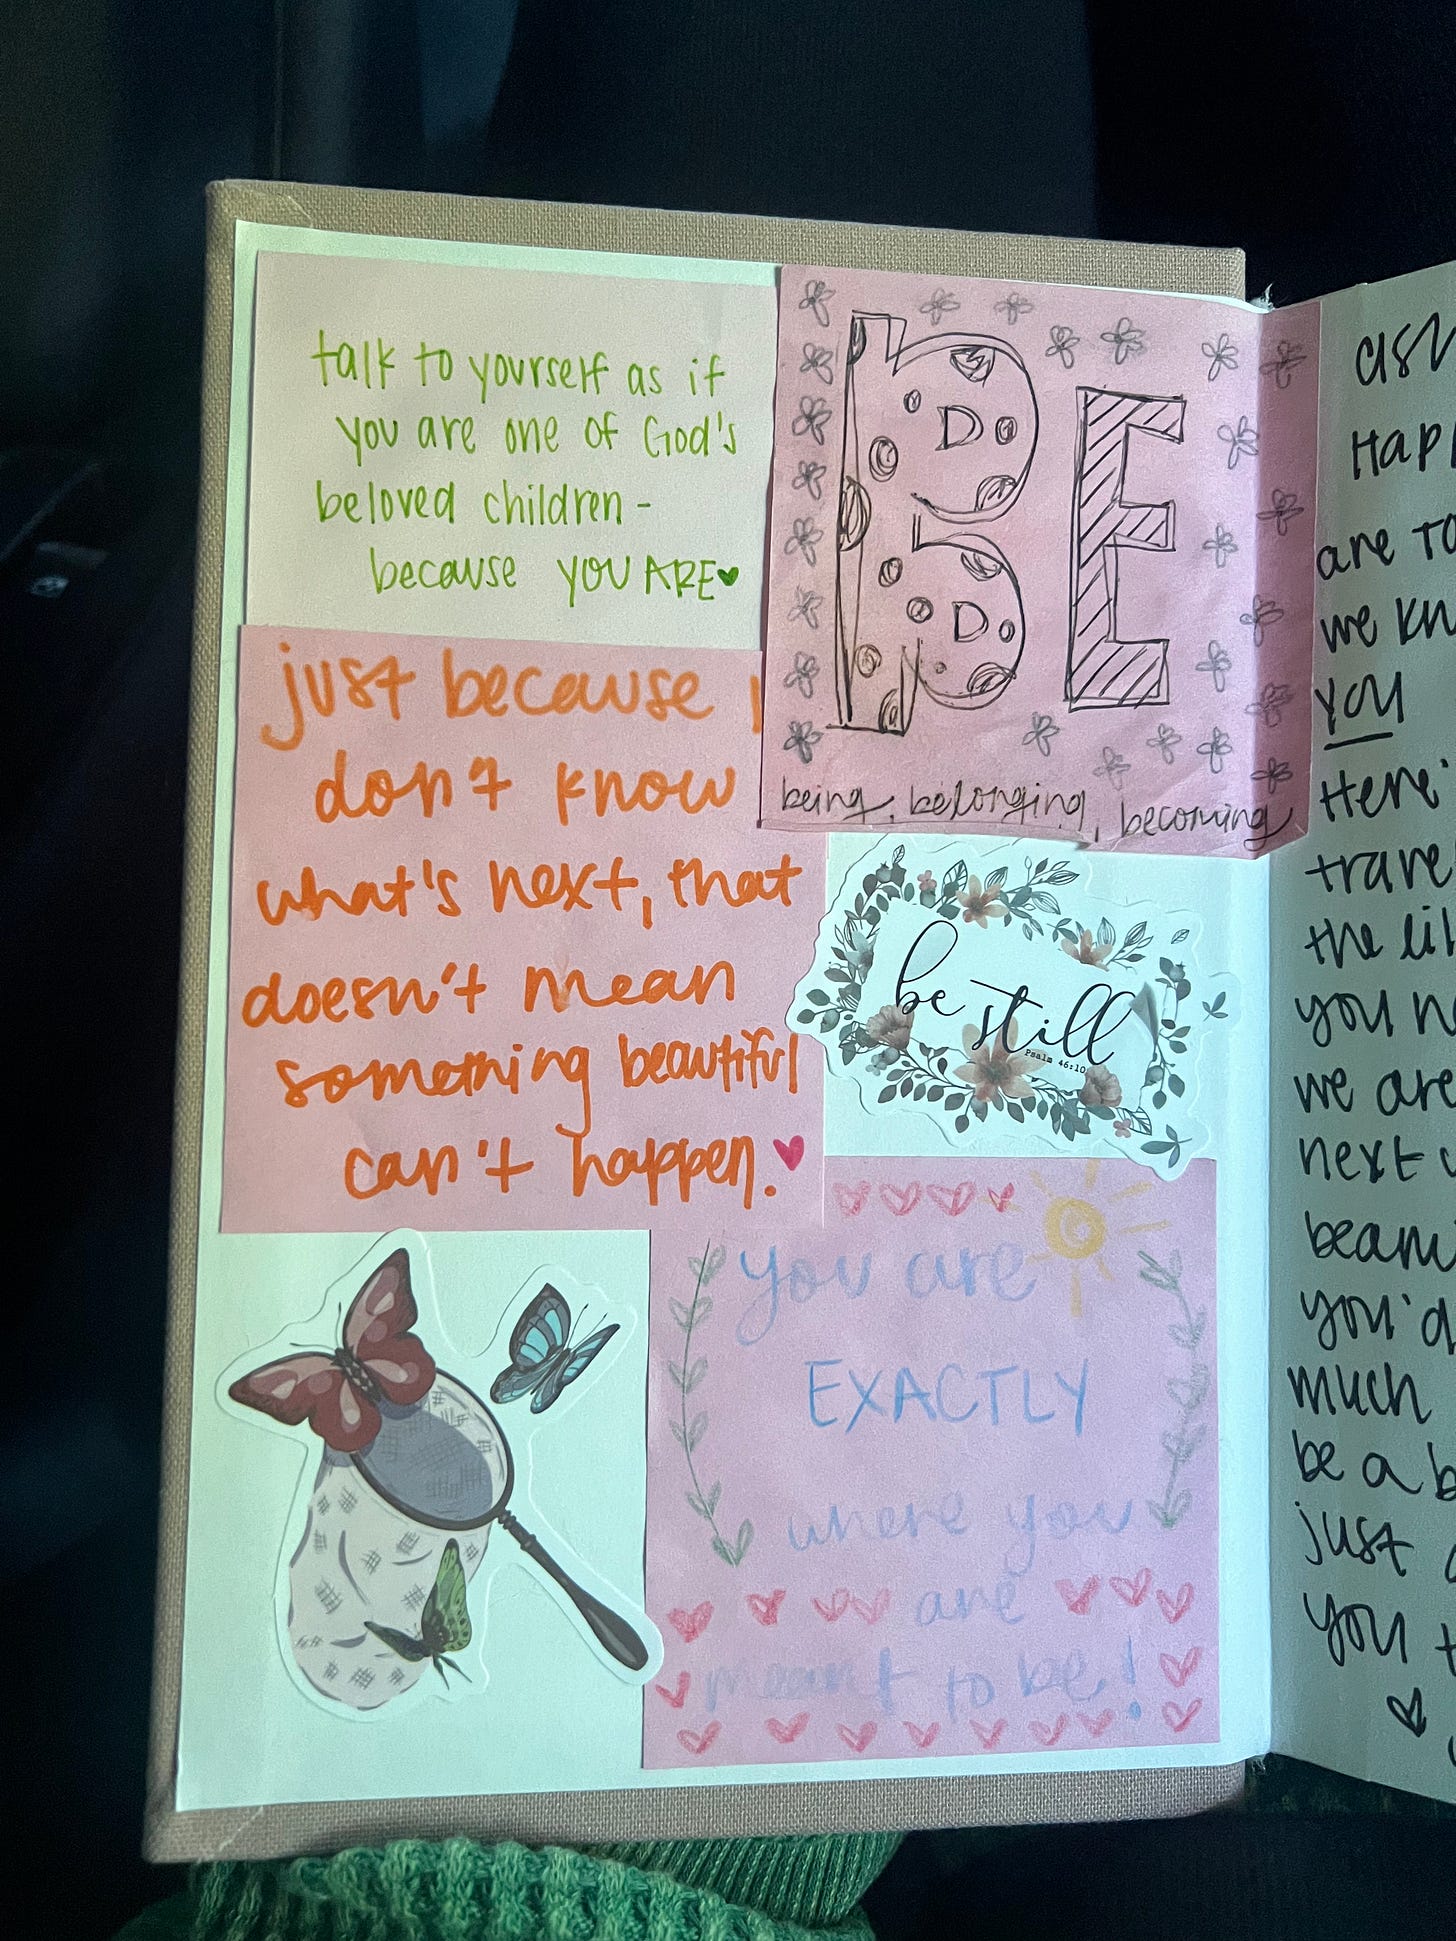 talk to yourself as if
you are one of God's
beloved children -
because YOU ARE♥
BE
being, belonging, becoming
just because I
don't know
what's next, that
doesn't mean
something beautiful
can't happen.♥
be still
Psalm 46:10
you are
EXACTLY
where you
are
meant to be!
are
you
Here'
the
you
we are
next
you'd
much
be a
just
you